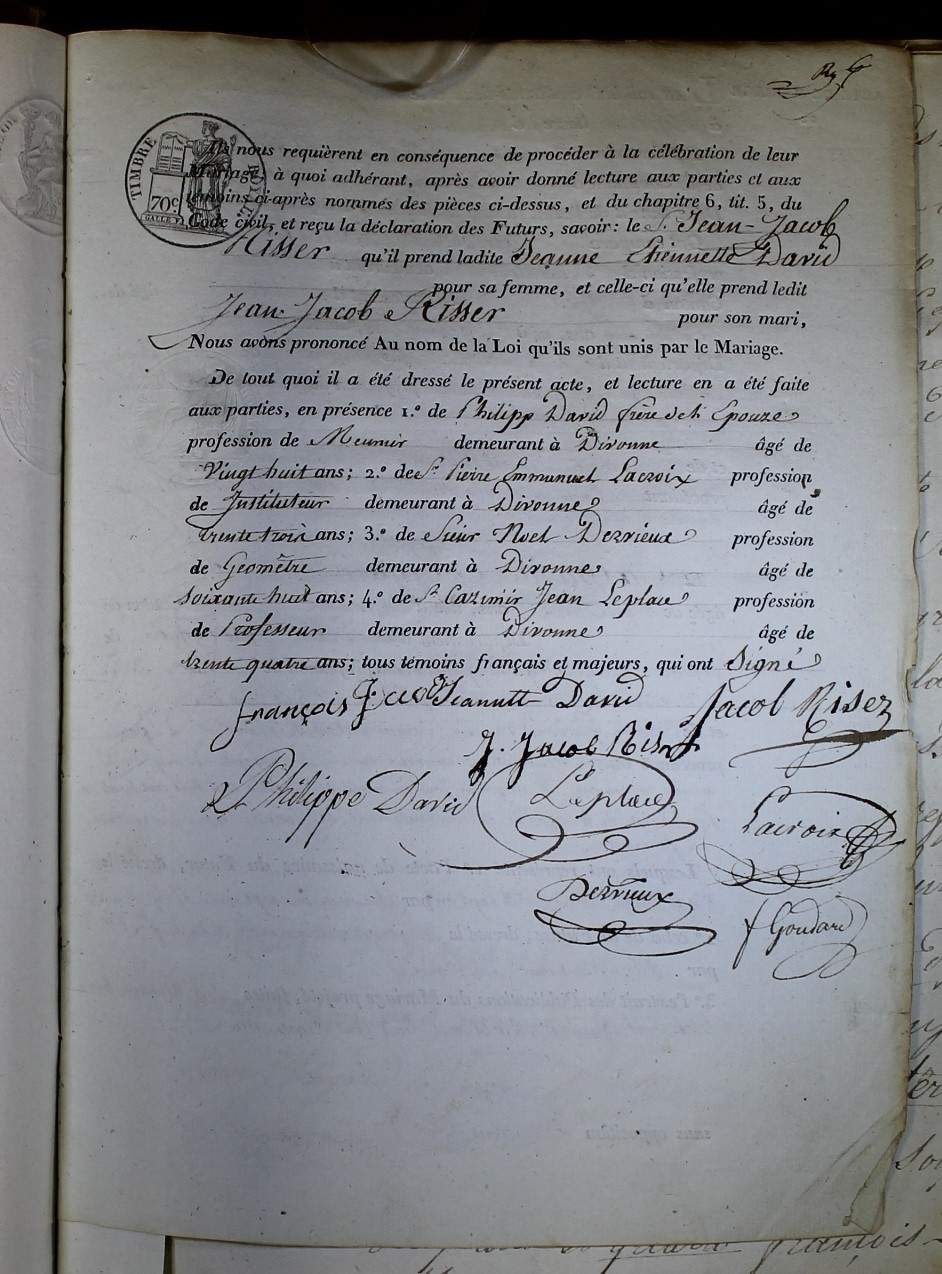 TIMBRE ROYAL
70c
Ils nous requièrent en conséquence de procéder à la célébration de leur
Mariage, à quoi adhérant, après avoir donné lecture aux parties et aux
témoins ci-après nommés des pièces ci-dessus, et du chapitre 6, tit. 5, du
Code civil, et reçu la déclaration des Futurs, savoir: le Sr. Jean-Jacob
Risser qu'il prend ladite Jeanne Etiennette David
pour sa femme, et celle-ci qu'elle prend ledit
Jean Jacob Risser pour son mari,
Nous avons prononcé Au nom de la Loi qu'ils sont unis par le Mariage.
De tout quoi il a été dressé le présent acte, et lecture en a été faite
aux parties, en présence 1.º de Philipp David frère de l'Epouze
profession de Meunier demeurant à Divonne âgé de
Vingt huit ans; 2.º de Sr. Pierre Emmanuel Lacroix profession
de Instituteur demeurant à Divonne âgé de
trente trois ans; 3.º de Sieur Noel Dezrieux profession
de Geomètre demeurant à Divonne âgé de
soixante huit ans; 4.º de Sr. Cazimir Jean Leplace profession
de Professeur demeurant à Divonne âgé de
trente quatre ans; tous témoins français et majeurs, qui ont Signé
françois Jeanette David Jacob Riser
J. Jacob Riser
Philippe David Leplace
Lacroix
Dezrieux
f Goudard